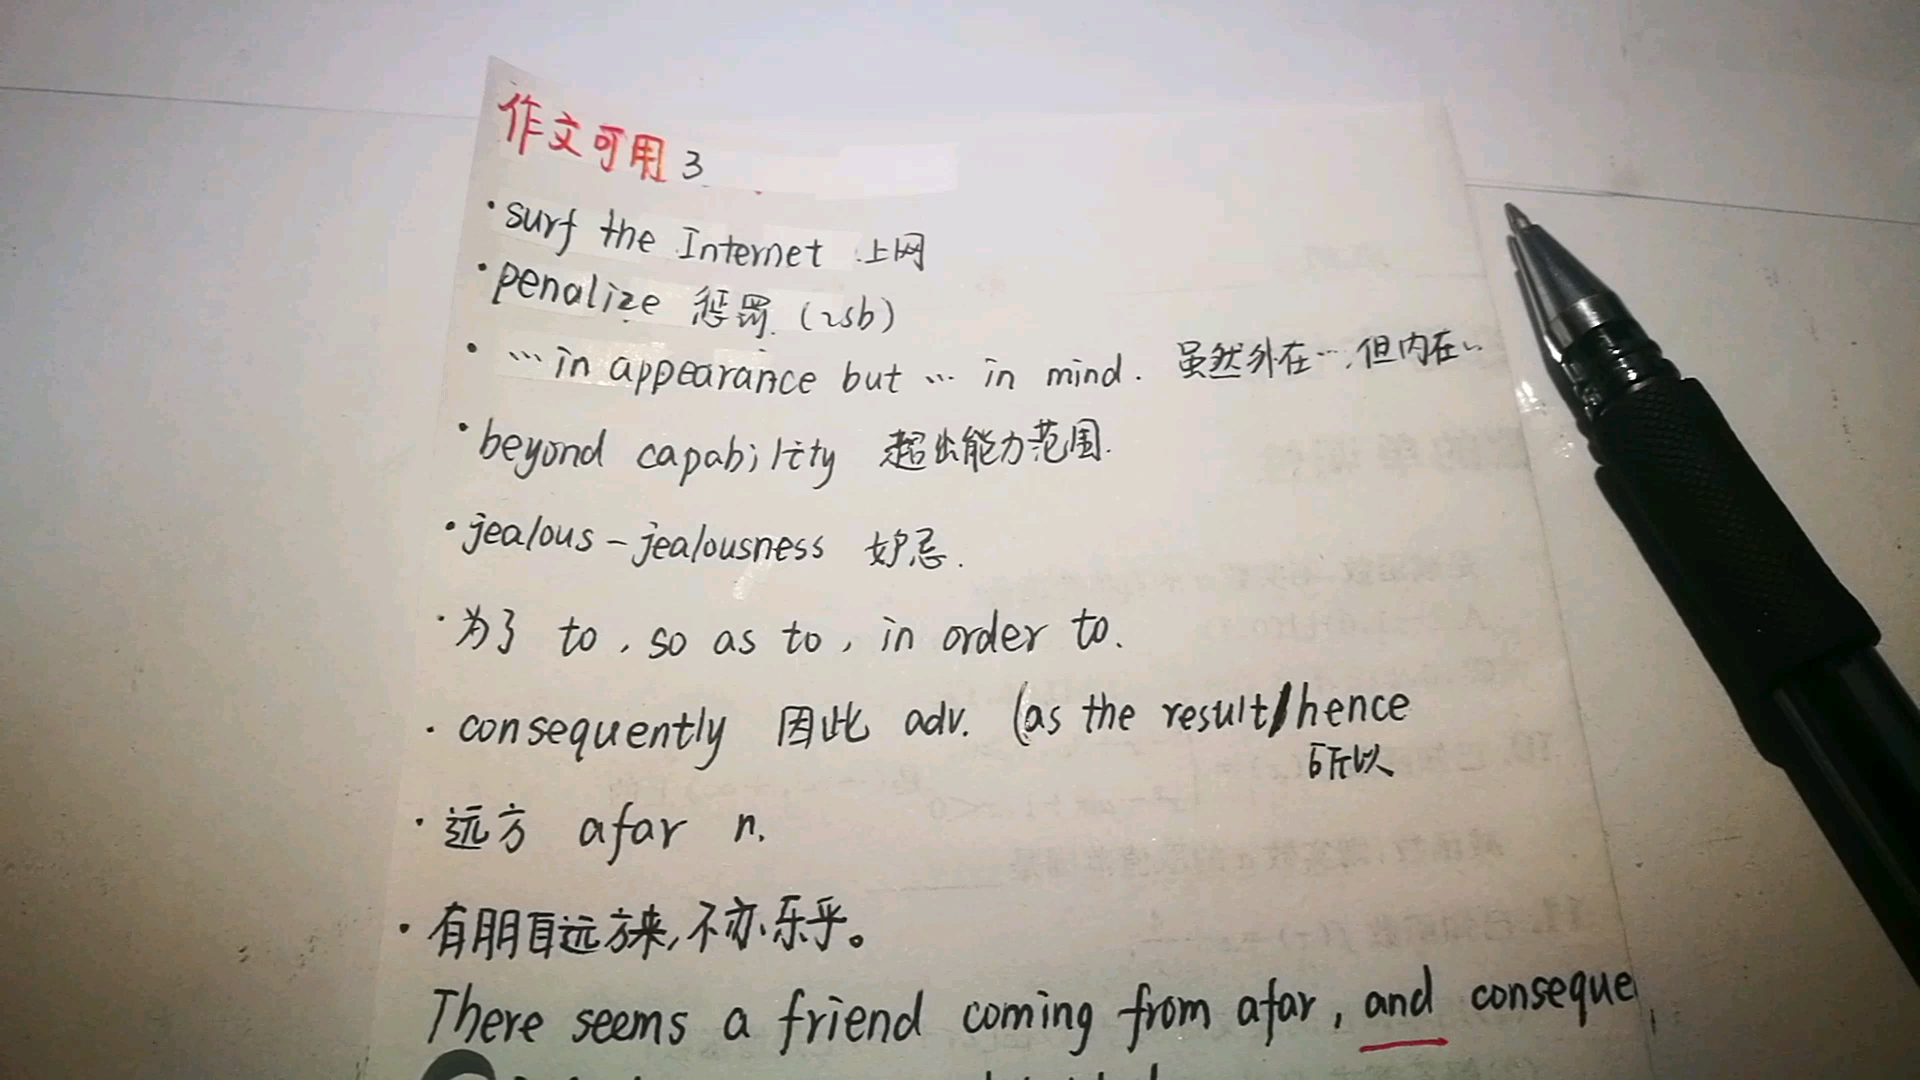 作文可用 3
· surf the Internet 上网
· penalize 惩罚. (vsb)
· … in appearance but … in mind. 虽然外在…,但内在…
· beyond capability 超出能力范围.
· jealous - jealousness 妒忌.
· 为了 to, so as to, in order to.
· consequently 因此 adv. (as the result/hence
所以
· 远方 afar n.
· 有朋自远方来,不亦乐乎。
There seems a friend coming from afar, and conseque